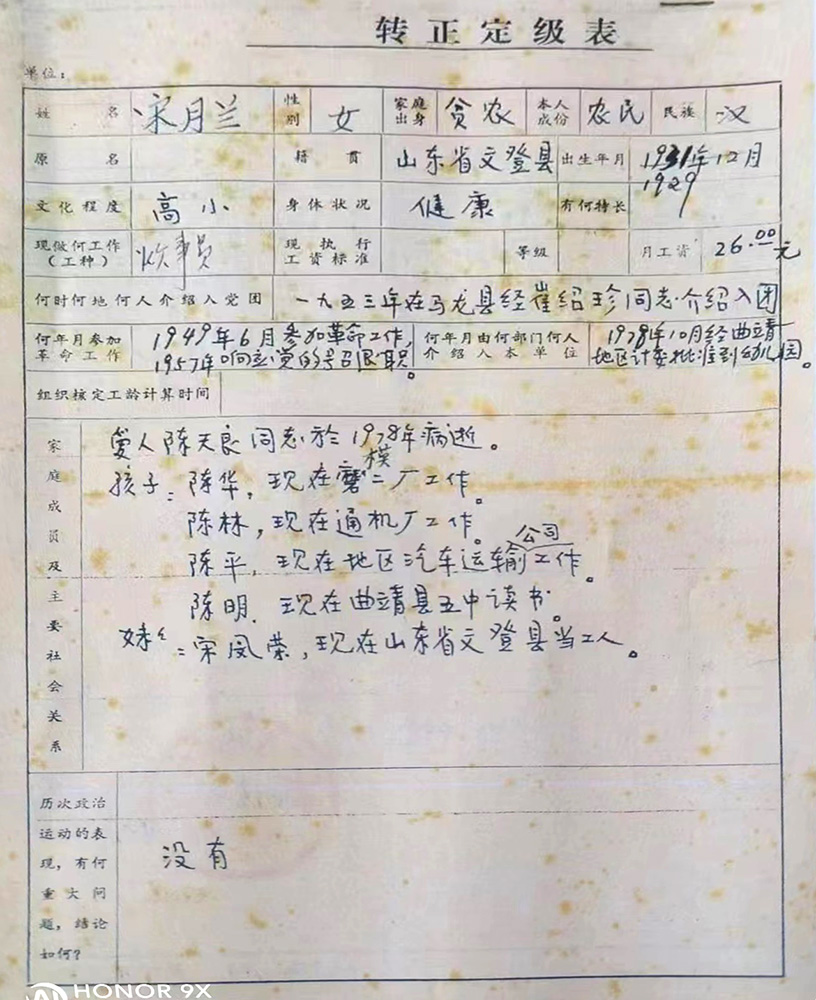 转正定级表
单位：
姓名 宋月兰 性别 女 家庭出身 贫农 本人成份 农民 民族 汉
原名 籍贯 山东省文登县 出生年月 1931年12月
1929
文化程度 高小 身体状况 健康 有何特长
现做何工作（工种） 炊事员 现执行工资标准 等级 月工资 26.00元
何时何地何人介绍入党团 一九五三年在马龙县经崔绍珍同志介绍入团
何年月参加革命工作 1949年6月参加革命工作，1957年响应党的号召退职。 何年月由何部门何人介绍入本单位 1978年10月经曲靖地区计委批准到幼儿园。
组织核定工龄计算时间
家庭成员及主要社会关系
爱人陈天良同志於1978年病逝。
孩子：陈华，现在磨模二厂工作。
陈林，现在通机厂工作。
陈平，现在地区汽车运输公司工作。
陈明．现在曲靖县五中读书。
妹妹：宋凤荣，现在山东省文登县当工人。
历次政治运动的表现，有何重大问题，结论如何？ 没有
HONOR 9X